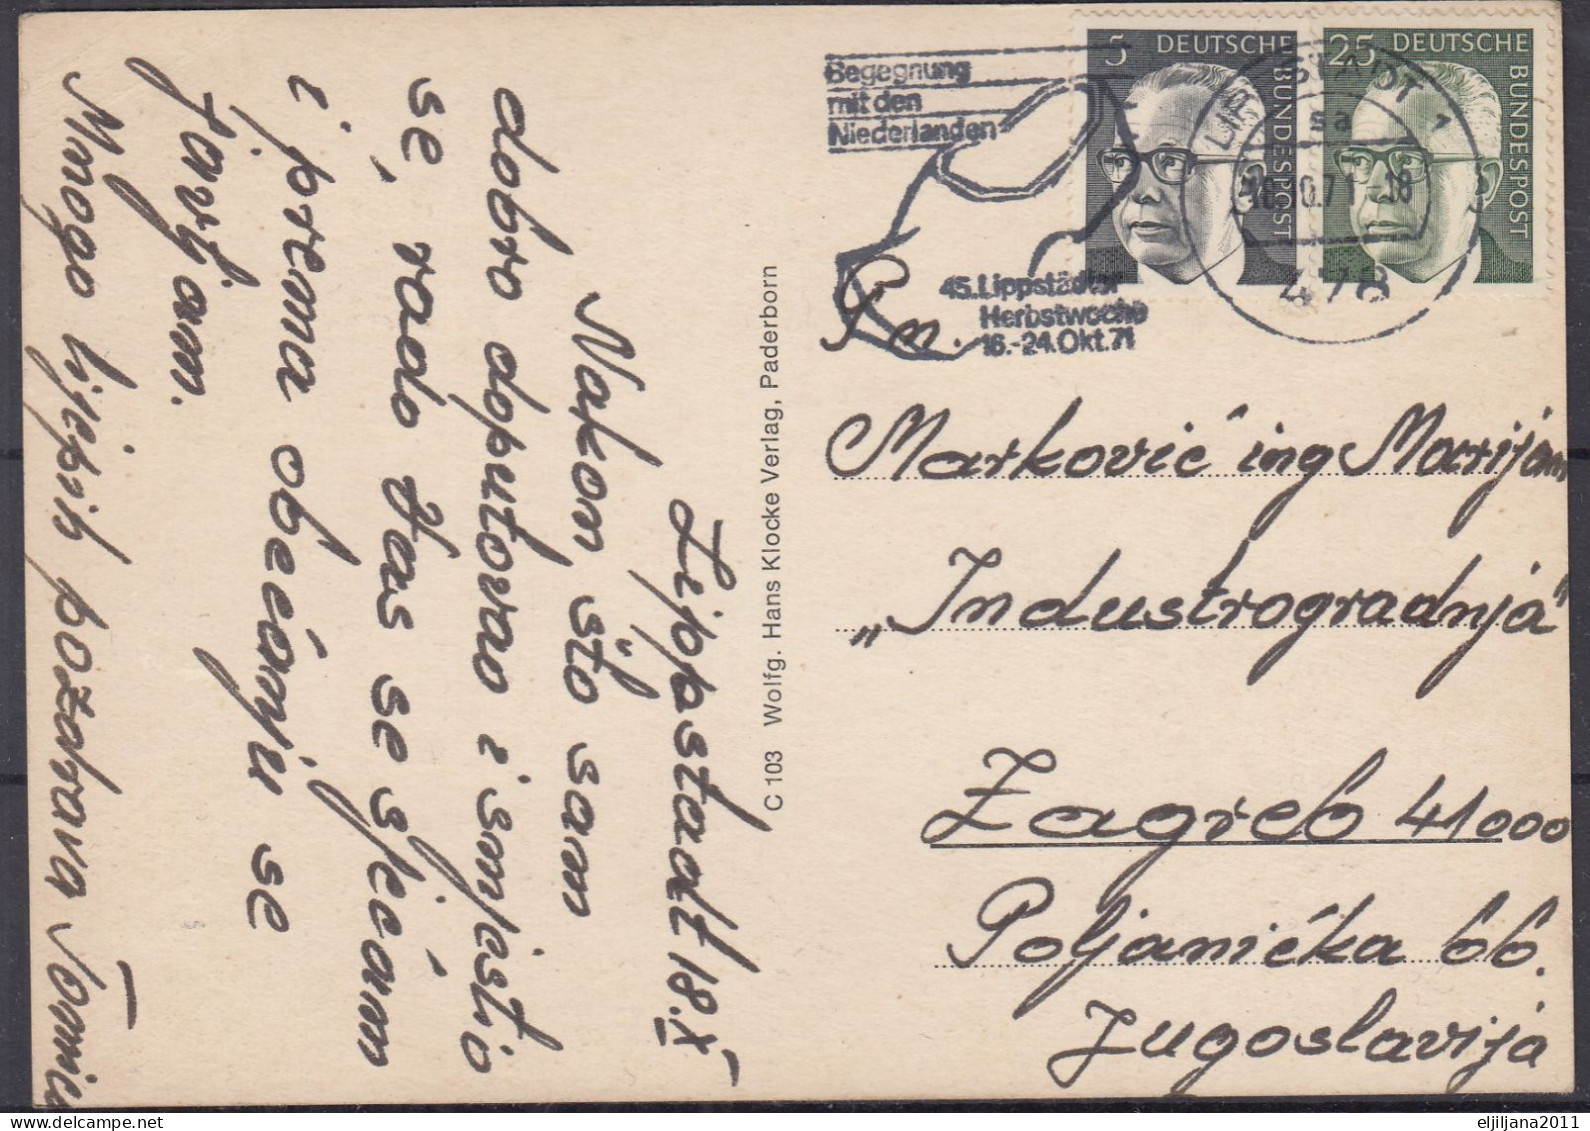 Lippstadt 18.X
Nakon što sam
dobro doputovao i smjestio
se, rado Vas se sjećam
i prema obećanju se
javljam.
Mnogo lijepih pozdrava Tomić
C 103 Wolfg. Hans Klocke Verlag, Paderborn
Begegnung
mit den
Niederlanden
45. Lippstädter
Herbstwoche
16.-24. Okt. 71
5 DEUTSCHE
BUNDESPOST
25 DEUTSCHE
BUNDESPOST
LIPPSTADT 1
sa
18.10.71-18
478
P. n.
Marković ing Marijan
"Industrogradnja"
Zagreb 41000
Poljanička bb.
Jugoslavija
eljiljana2011